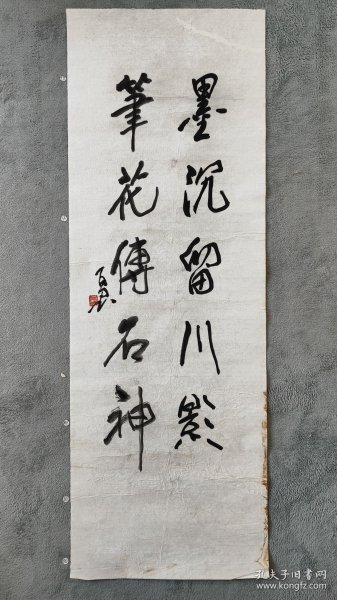 墨沉留川影
筆花傳石神
孔夫子旧书网
www.kongfz.com